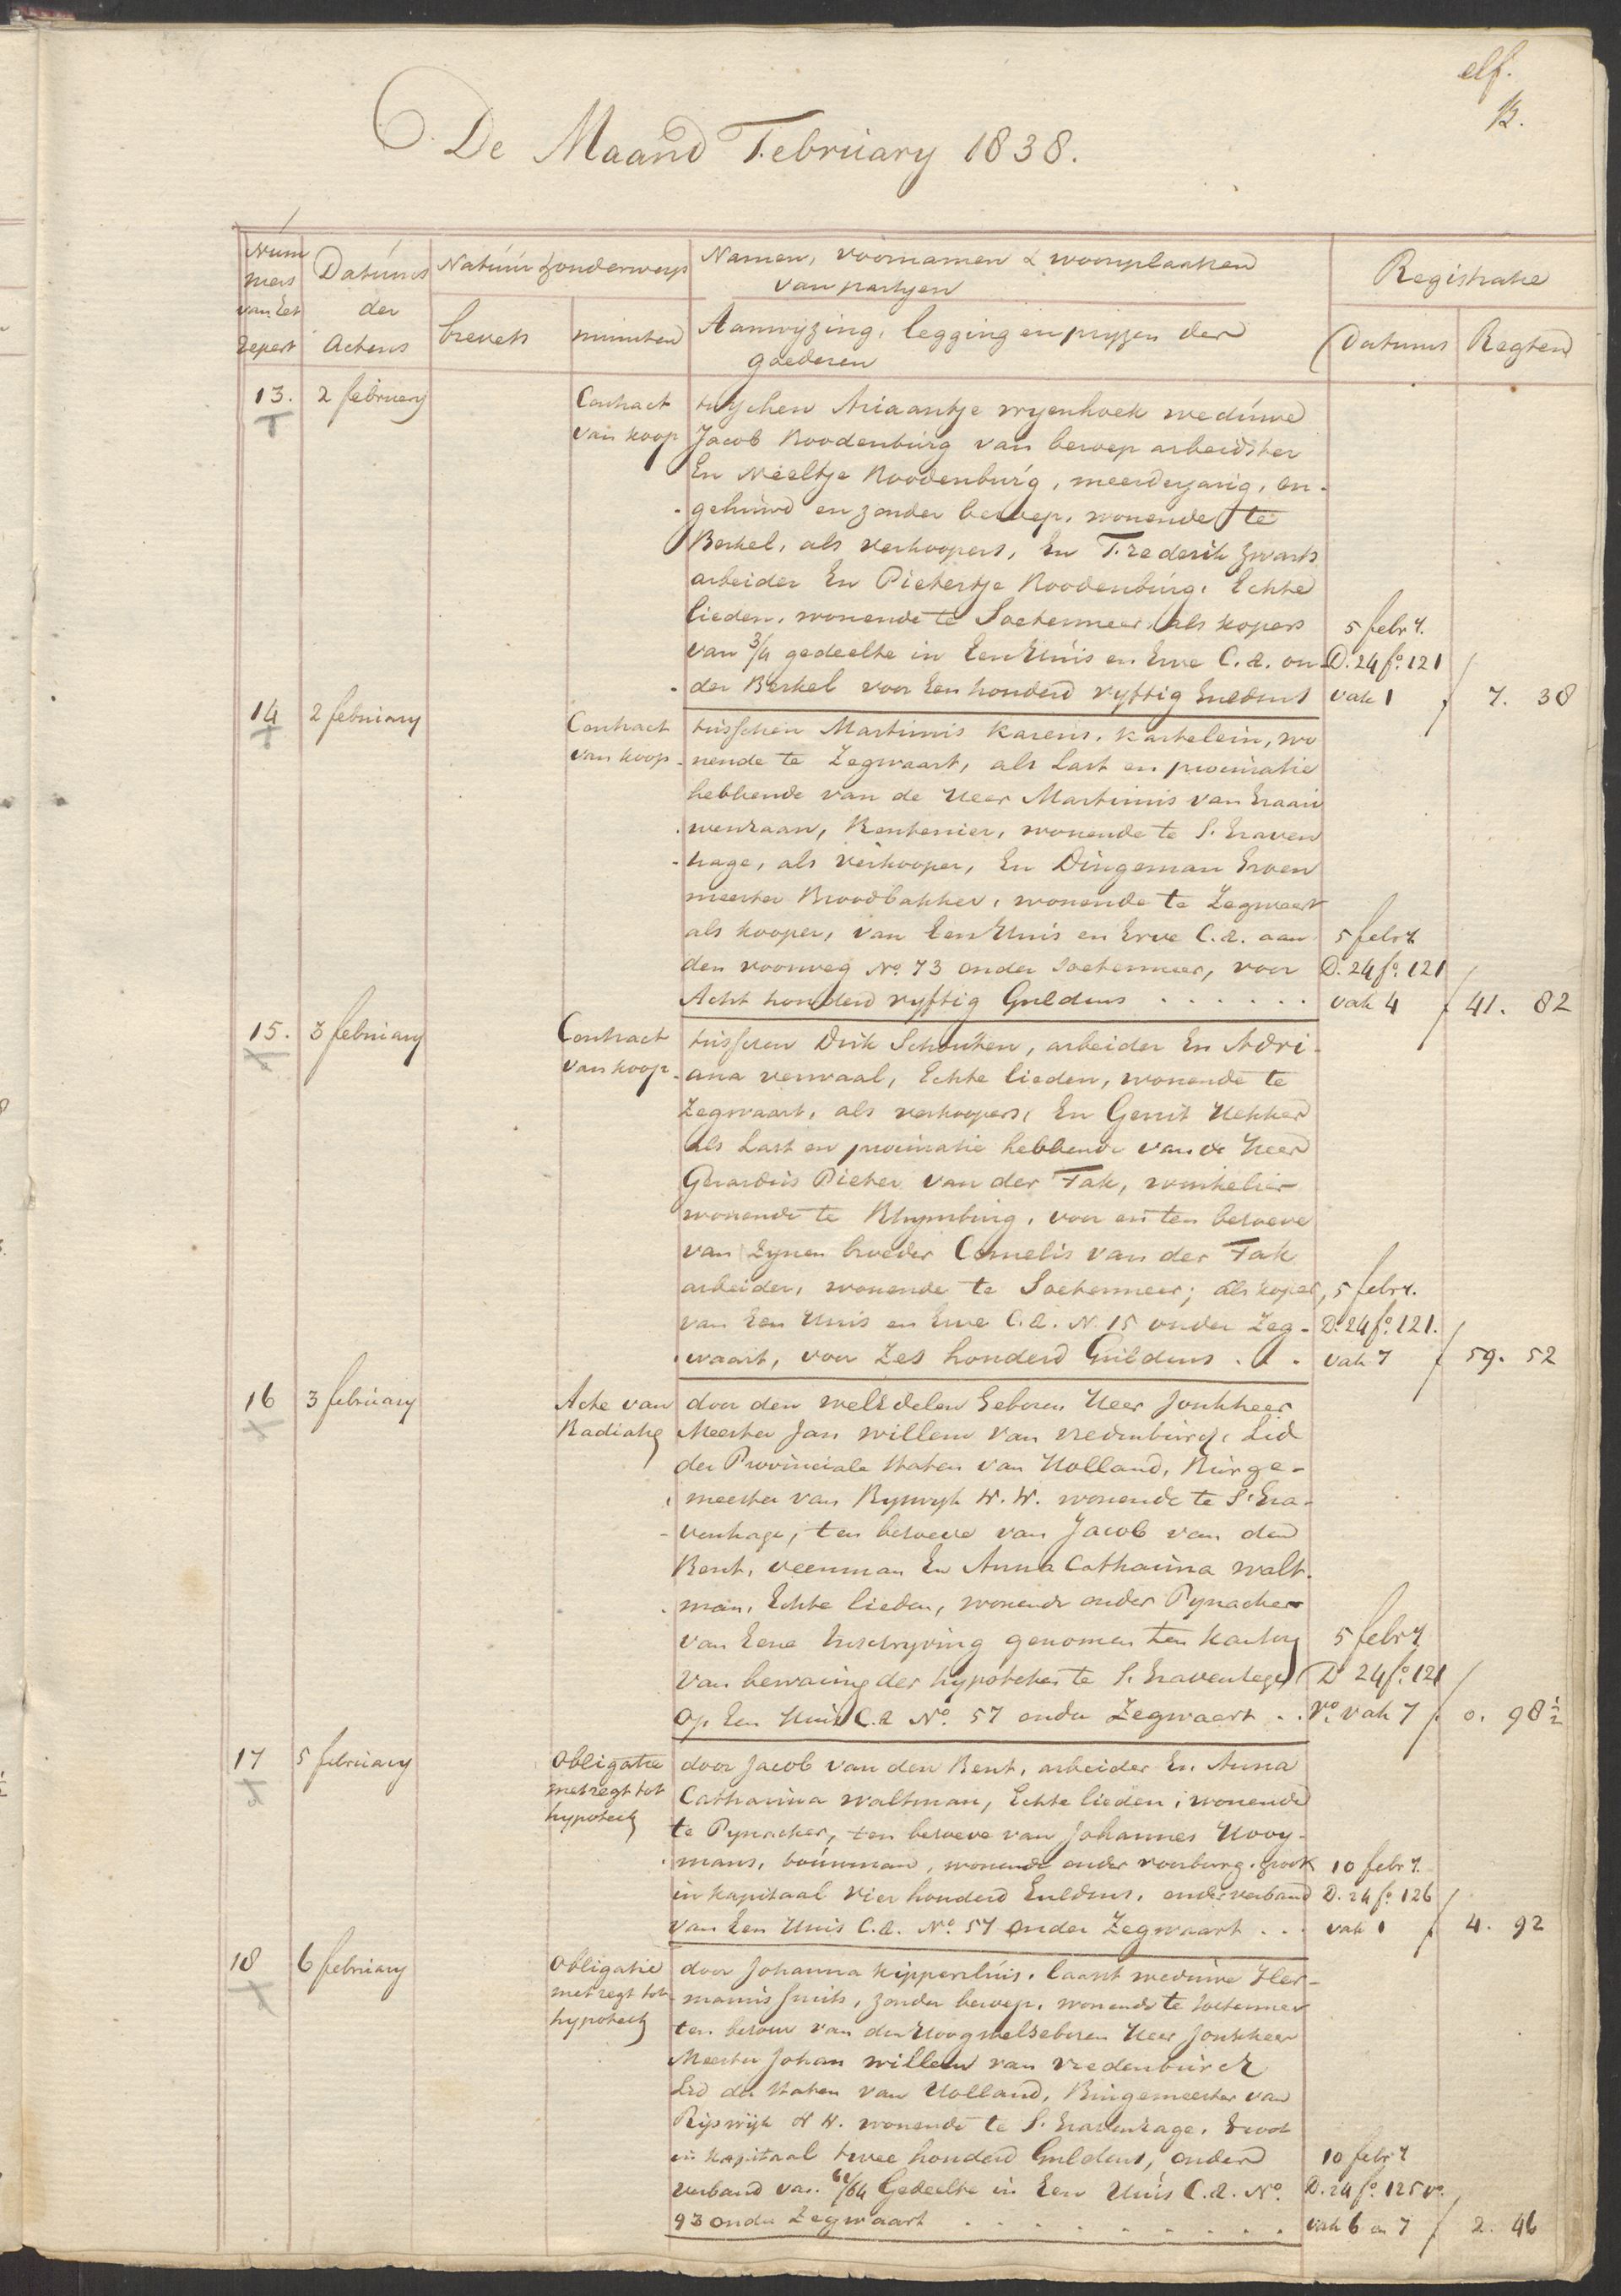 elf.
De Maand February 1838.
Num
mers
van het
repert
Datums
der
Actens
Natuur & onderwerp
brevets
minuten
Namen, voornamen & woonplaatsen
van partyen
Aanwyzing, legging en pryzen der
goederen
Registratie
Datums
Regten
13. 2 february
Contract
van koop
tusschen Ariaantje vryenhoek weduwe
Jacob Roodenburg van beroep arbeidster
En Neeltje Roodenburg, meerderjarig, on-
-gehuwd en zonder beroep, wonende te
Berkel, als verkoopers, En Frederik Zwarts
arbeider En Pietertje Roodenburg, Echte
lieden, wonende te Soetermeer, als kopers
van 3/4 gedeelte in Een Huis en Erve C.A. on-
-der Berkel voor Een honderd vyftig Guldens
5 febry.
D. 24 fo. 121
vak 1 f 7. 38
14 2 february
Contract
van koop
tusschen Martinus Karens, Kastelein, wo
-nende te Zegwaart, als Last en procuratie
hebbende van de Heer Martinus van Graau
-wenhaan, Rentenier, wonende te S. Graven
-hage, als Verkooper, En Dingeman Groen
meester Broodbakker, wonende te Zegwaart
als kooper, van Een Huis en Erve C.A. aan
den voorweg No. 73 onder Soetermeer, voor
Acht honderd vyftig Guldens . . . . . . .
5 febry
D. 24 fo. 121
vak 4 f 41. 82
15. 3 february
Contract
van koop
tusschen Dirk Schouten, arbeider En Adri-
-ana verwaal, Echte lieden, wonende te
Zegwaart, als verkoopers, En Gerrit Hekker
als Last en procuratie hebbende van de Heer
Gerardus Pieter van der Tak, winkelier
wonende te Rhynsburg, voor en ten behoeve
van Zynen broeder Cornelis van der Tak
arbeider, wonende te Soetermeer; als koper,
van Een Huis en Erve C.A. N. 15 onder Zeg-
-waart, voor Zes honderd Guldens . . .
5 febry.
D. 24 fo. 121.
vak 7 f 59. 52
16 3 february
Acte van
Radiatie
door den welEdelen Geboren Heer Jonkheer
Meester Jan willem van vredenburch, Lid
der Provinciale Staten van Holland, Burge-
meester van Ryswyk &. &. wonende te S. Gra-
-venhage, ten behoeve van Jacob van den
Bent, veenman En Anna Catharina walt-
-man, Echte lieden, wonende onder Pynacker
van Eene Inschryving genomen ten kantore
van bewaring der hypotheken te S. Gravenhage
op Een Huis C.A No. 57 onder Zegwaart . .
5 febry
D 24 fo. 121
vo. vak 7 f 0. 98 1/2
17 5 february
Obligatie
met regt tot
hypotheek
door Jacob van den Bent, arbeider En Anna
Catharina waltman, Echte lieden, wonende
te Pynacker, ten behoeve van Johannes Hooy-
-mans, bouwman, wonende onder voorburg, groot
in kapitaal vier honderd Guldens, onder verband
van Een Huis C.A. No. 57 onder Zegwaart . . .
10 febry.
D. 24 fo. 126
vak 1 f 4. 92
18 6 february
Obligatie
met regt tot
hypotheek
door Johanna Kippersluis, laatst weduwe Her-
-manus Smits, zonder beroep, wonende te Soetermeer
ten behoeve van den Hoog welgeboren Heer Jonkheer
Meester Johan willem van vredenburch
Lid der Staten van Holland, Burgemeester van
Rijswijk &. &. wonende te S. Gravenhage, groot
in kapitaal twee honderd Guldens, onder
verband van /64 Gedeelte in Een Huis C.A. No.
93 onder Zegwaart . . . . . . . . .
10 febry
D. 24 fo. 125 vo.
vak 6 en 7 f 2. 46